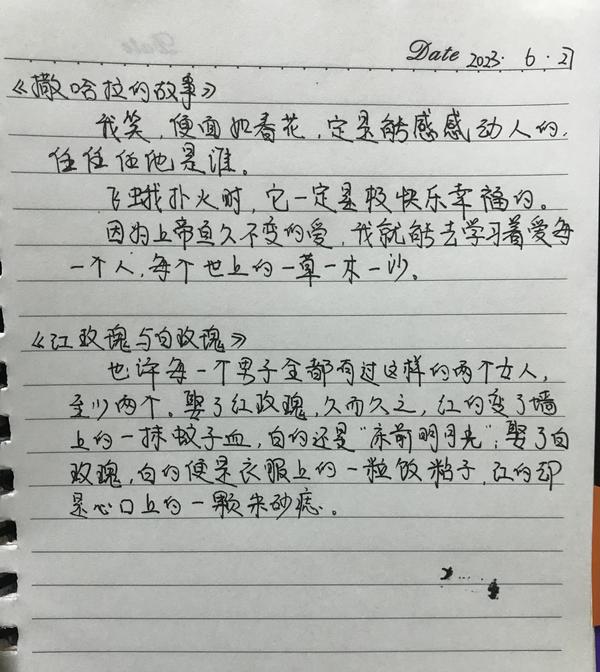 Date 2023. 6. 27
《撒哈拉的故事》
我笑,便面如春花,定是能感感动人的,
任任任他是谁。
飞蛾扑火时,它一定是极快乐幸福的。
因为上帝恒久不变的爱,我就能去学习着爱每
一个人,每个世上的一草一木一沙。
《红玫瑰与白玫瑰》
也许每一个男子全都有过这样的两个女人,
至少两个。娶了红玫瑰,久而久之,红的变了墙
上的一抹蚊子血,白的还是“床前明月光”;娶了白
玫瑰,白的便是衣服上的一粒饭粘子,红的却
是心口上的一颗朱砂痣。